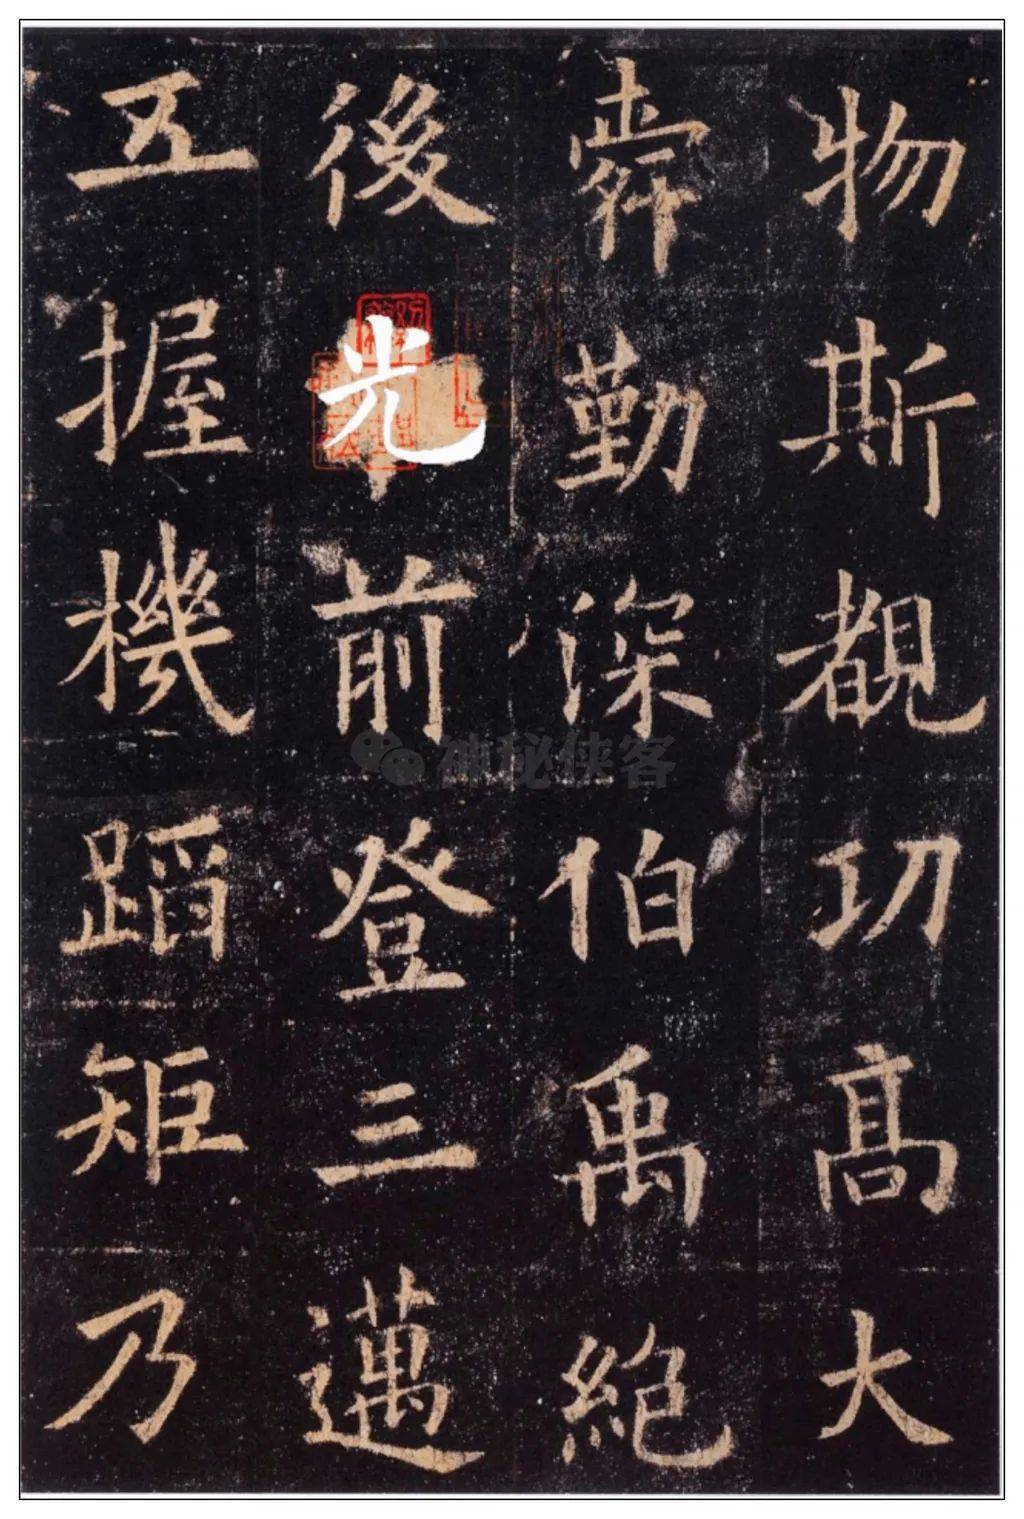 物斯覩功高大
舜勤深伯禹絶
後光前登三邁
五握機蹈矩乃
神秘侠客